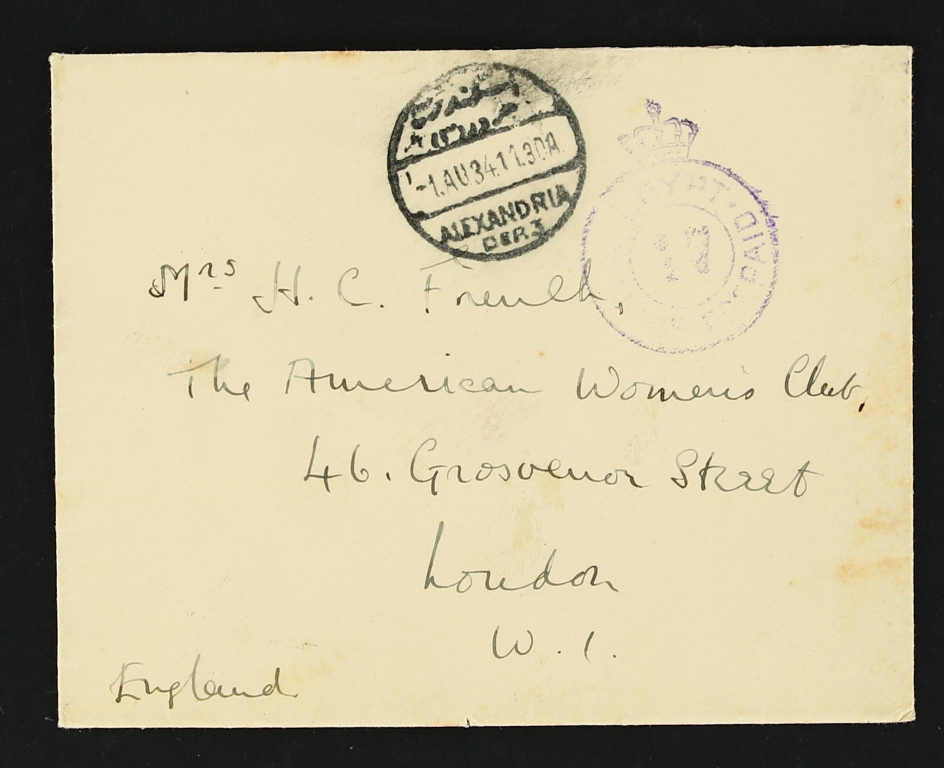 اسكندرية
-1.AU34.11.30A
ALEXANDRIA
DEP.3
EGYPT·
PAID
Mrs H. C. French,
The American Women's Club,
46. Grosvenor Street
London
W. 1.
England